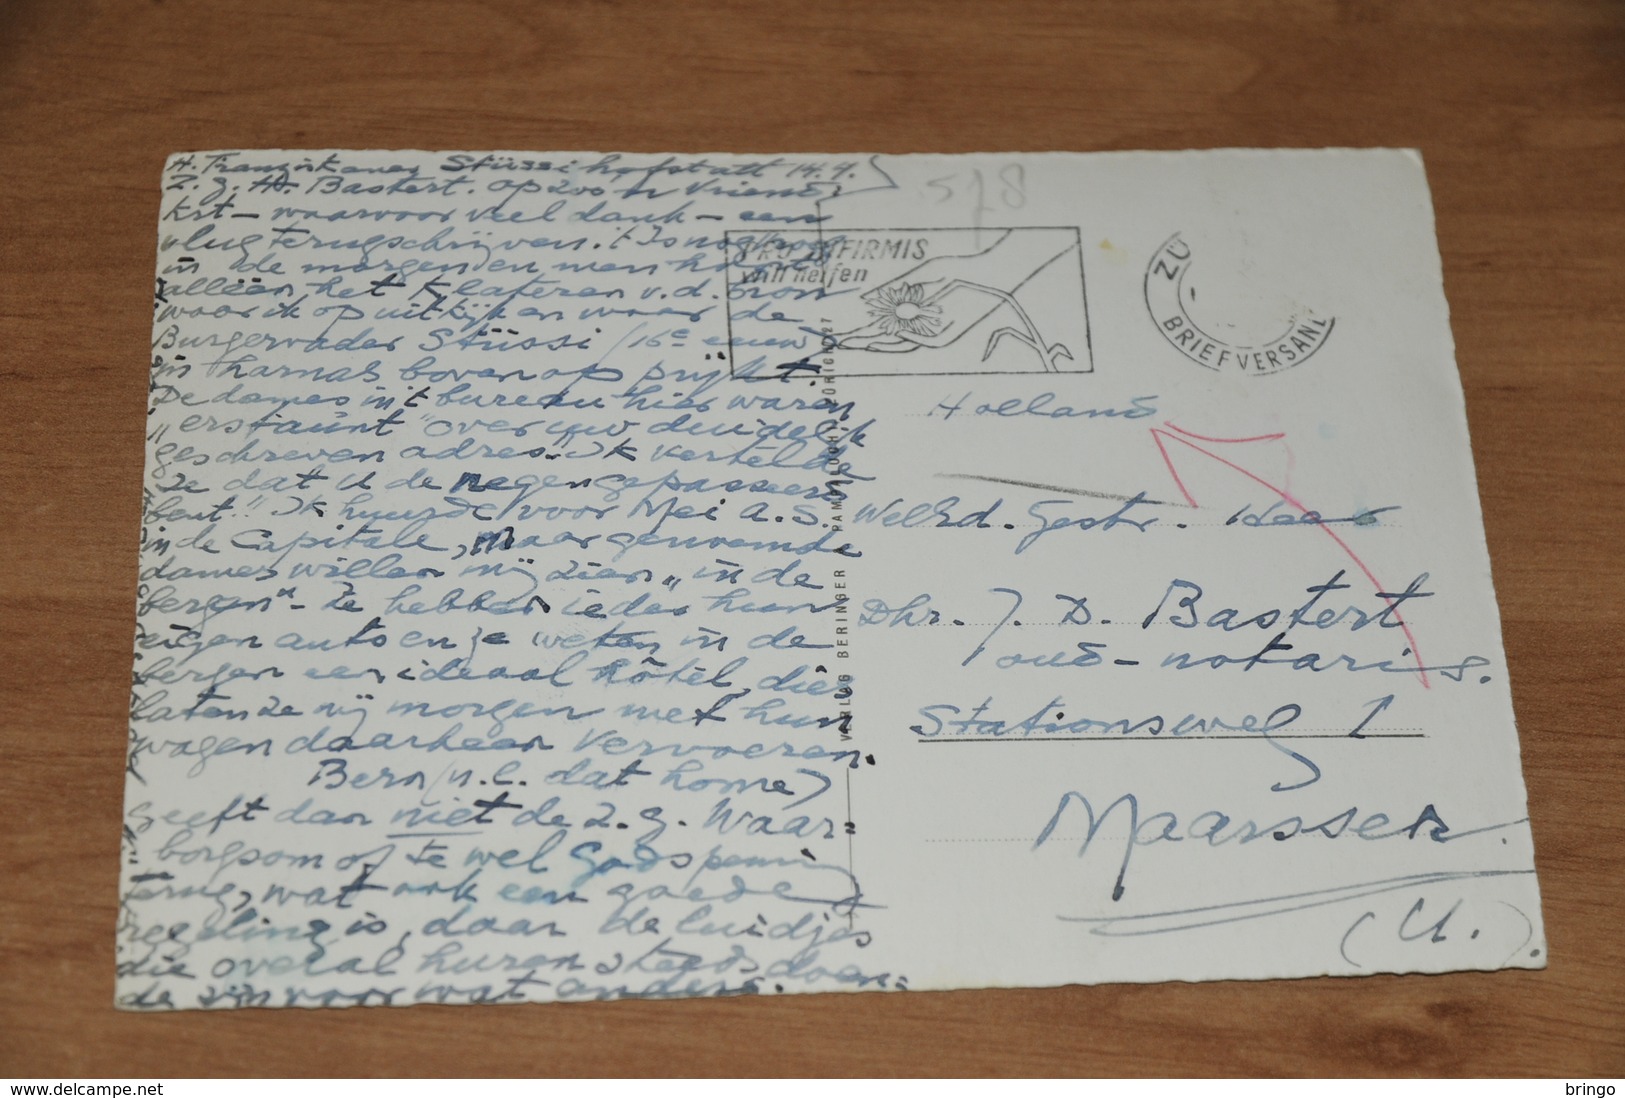 H. Franziskaner Stüssihofstatt 14.4.
Z.g. Hr Bastert. op zoo'n vriend.
krt - waarvoor veel dank - een
vlug terugschrijven. 't Is nog vroeg
in de morgen en men hoort
alléén het klateren v.d. bron
waar ik op uitkijk en waar de
Burgervader Stüssi (16e eeuw)
in harnas bovenop prijkt.
De dames in 't bureau hier waren
"erstaunt" over uw duidelijk
geschreven adres. Ik vertelde
ze dat U de negen gepasseerd
bent." Ik huurde voor Mei a.s.
in de Capitale, maar genoemde
dames willen mij zien "in de
bergen" - Ze hebben ieder hun
eigen auto en ze weten in de
bergen een ideaal hôtel, dies
laten ze mij morgen met hun
wagen daarheen vervoeren.
Bern (n.l. dat home)
geeft dan niet de z.g. Waar-
borgsom of te wel Godspenning
terug, wat ook een goede
regeling is, daar de luidjes
die overal huren steeds doen:
de zin voor wat anders.
578
PRO INFIRMIS
will helfen
ZÜ
BRIEFVERSAND
VERLAG BERINGER & PAMPALUCHI, ZÜRICH 27
Holland
WelEd. Gestr. Heer
Dhr. J. D. Bastert
oud-notaris.
Stationsweg 1
Maarssen.
(U.).
delcampe.net
bringo